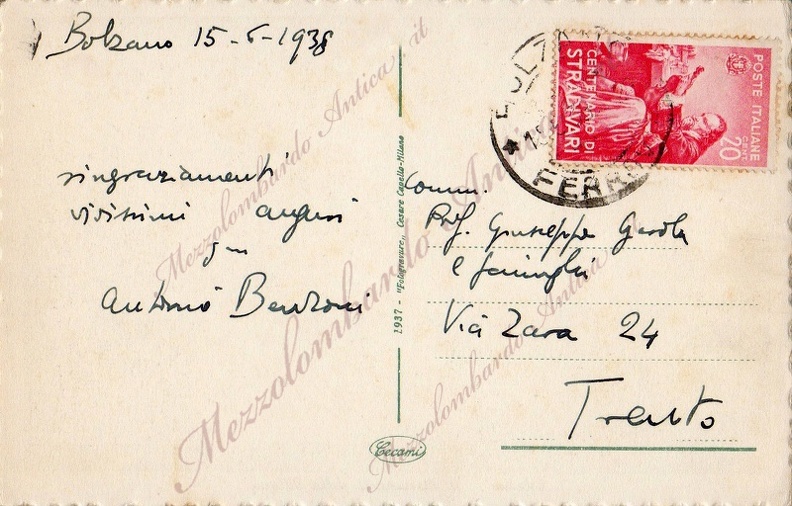 Bolzano 15-6-1938
ringraziamenti
vivissimi auguri
Antonio
Comm.
Prof. Giuseppe Gerola
e famiglia
Via Zara 24
Trento
POSTE ITALIANE
CENTENARIO DI
STRADIVARI
20
CENT.
BOLZANO
FERR
1937 - "Fotogravure" Cesare Capello-Milano
Cecami
Mezzolombardo Antica.it
Mezzolombardo Antica
Mezzolombardo Antica